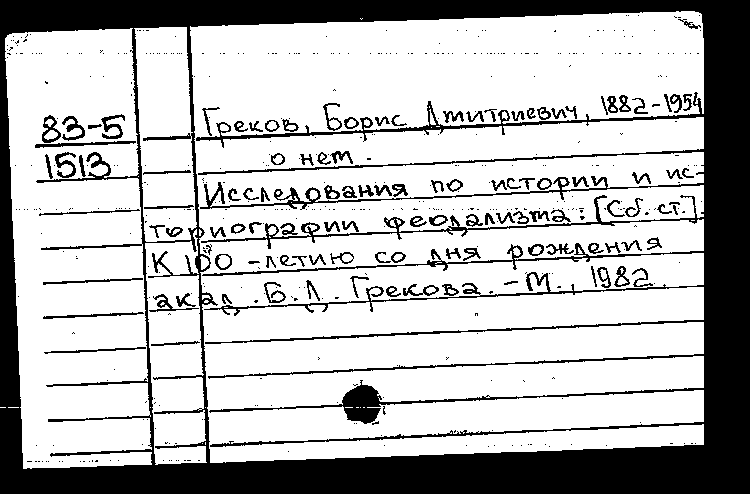 83-5
1513
Греков, Борис Дмитриевич, 1882-1954
о нем.
Исследования по истории и ис-
ториографии феодализма: [Сб. ст.].
К 100-летию со дня рождения
акад. Б.Д. Грекова. - М., 1982.